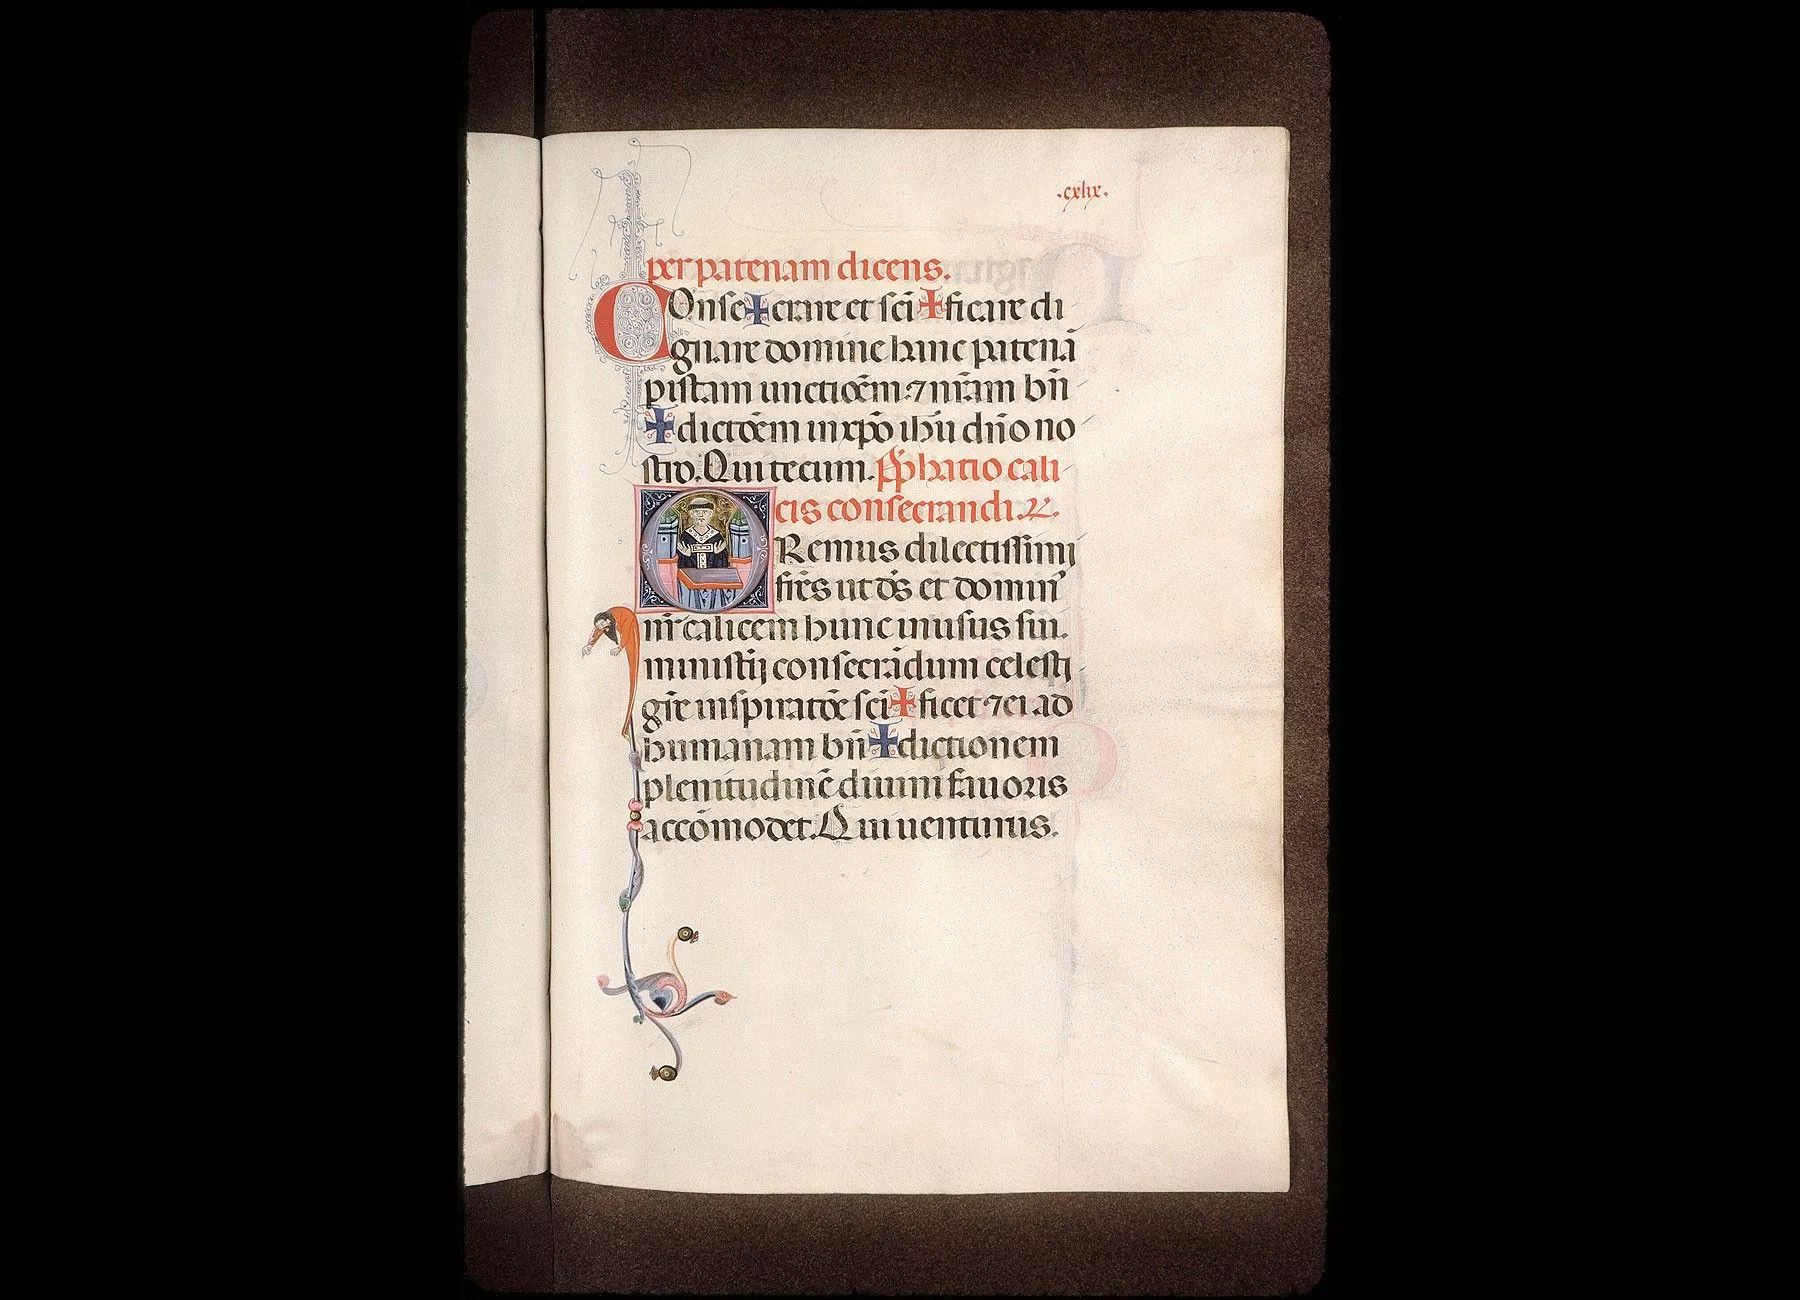 .cxlix.
per patenam dicens.
COnse✠crare et sci✠ficare di
gnare domine hanc patenā
p istam unctiōem ⁊ nr̄am bn̄
✠dictōem in xp̄o ih̄u dn̄o no
stro. Qui tecum. P̄phatio cali
cis consecrandi.
ORemus dilectissimi
fr̄es ut d̄s et domin᾿
nr̄ calicem hunc in usus sui
ministīj consecrādum celesti
gr̄e inspiratōe sci✠ficet ⁊ ei ad
humanam bn̄✠dictionem
plenitudinē diuini fauoris
accōmodet. Qui uenturus.